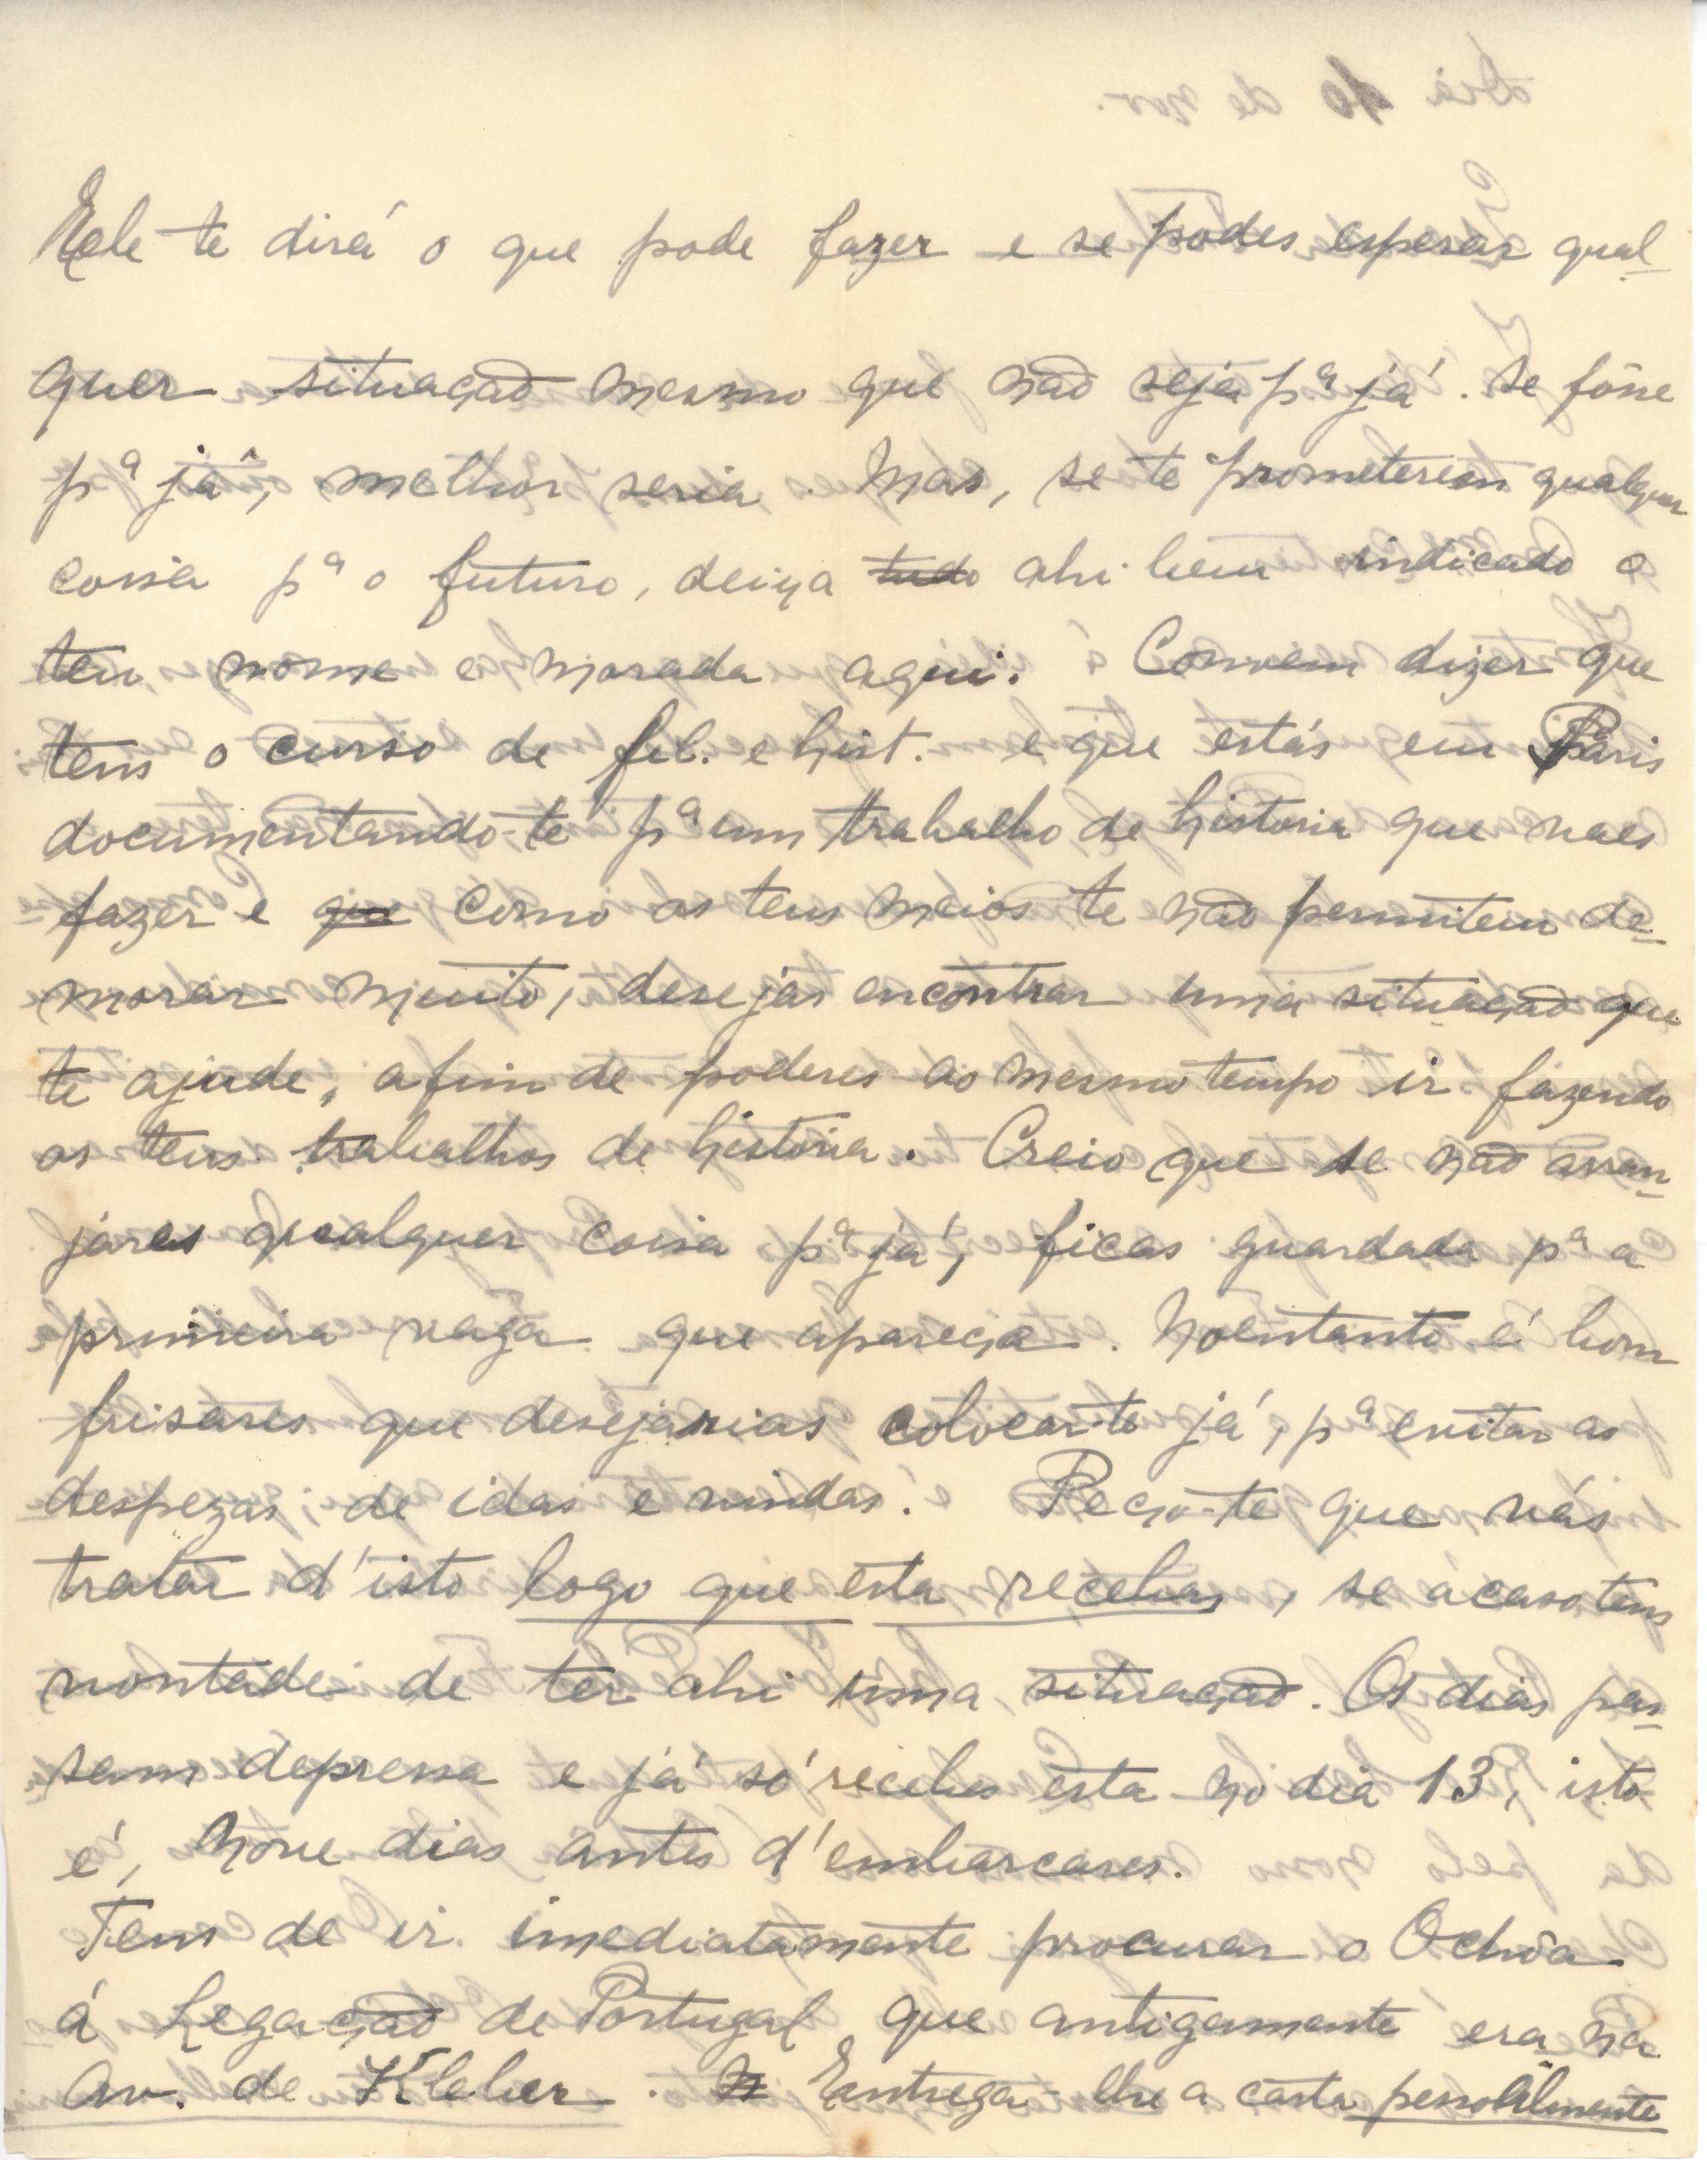 Ele te dirá o que pode fazer e se podes esperar qual-
quer situação mesmo que não seja pª já. Se fôsse
pª já, melhor seria. Mas, se te prometerem qualquer
coisa pª o futuro, deixa tudo ahi bem indicado o
teu nome e morada aqui. Convem dizer que
tens o curso de fil. e hist. e que estás em Paris
documentando-te pª um trabalho de historia que vaes
fazer e que como os teus meios te não permitem de-
morar muito, desejas encontrar uma situação que
te ajude, afim de poderes ao mesmo tempo ir fazendo
os teus trabalhos de historia. Creio que se não arran-
jares qualquer coisa pª já, ficas guardada pª a
primeira vaga que apareça. Noentanto é bom
frisares que desejarias colocar-te já, pª evitar as
despezas de idas e vindas. Peço-te que vás
tratar d'isto logo que esta recebas, se ácaso tens
vontade de ter ahi uma situação. Os dias pas-
sam depressa e já só recebes esta no dia 13, isto
é, nove dias antes d'embarcares.
Tens de ir imediatamente procurar o Ochôa
á Legação de Portugal que antigamente era na
Av. de Kleber. Entrega-lhe a carta pessoalmente